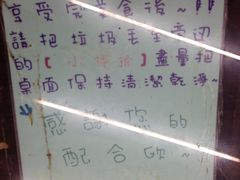 享受完美食後~!!
請把垃圾丟至旁邊
的【小桶袋】盡量把
桌面保持清潔乾淨~
感謝您的
配合呦~!!